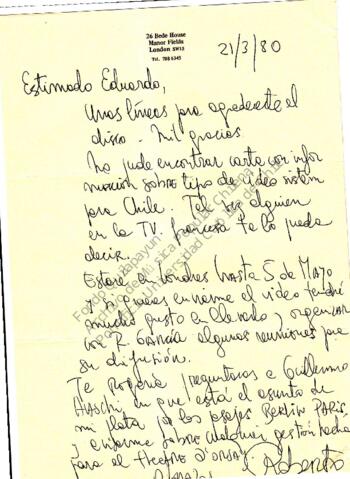 26 Bede House
Manor Fields
London SW15
Tel. 788 6345
21/3/80
Estimado Eduardo,
Unas líneas para agradecerte el
disco. Mil gracias
No pude encontrar carta con infor
mación sobre tipo de video sistem
para Chile. Tal vez alguien
en la TV. francesa te lo pueda
decir.
Estaré en Londres hasta 5 de Mayo
y si puedes enviarme el video tendré
mucho gusto en llevarlo y organizar
con R. García algunas reuniones para
su difusión.
Te rogaría preguntaras a Guillermo
en que está el asunto de
mi plata por los pasajes Berlín París
y informe sobre cualquier gestión hecha
para el Theatre D'Orsay
Roberto